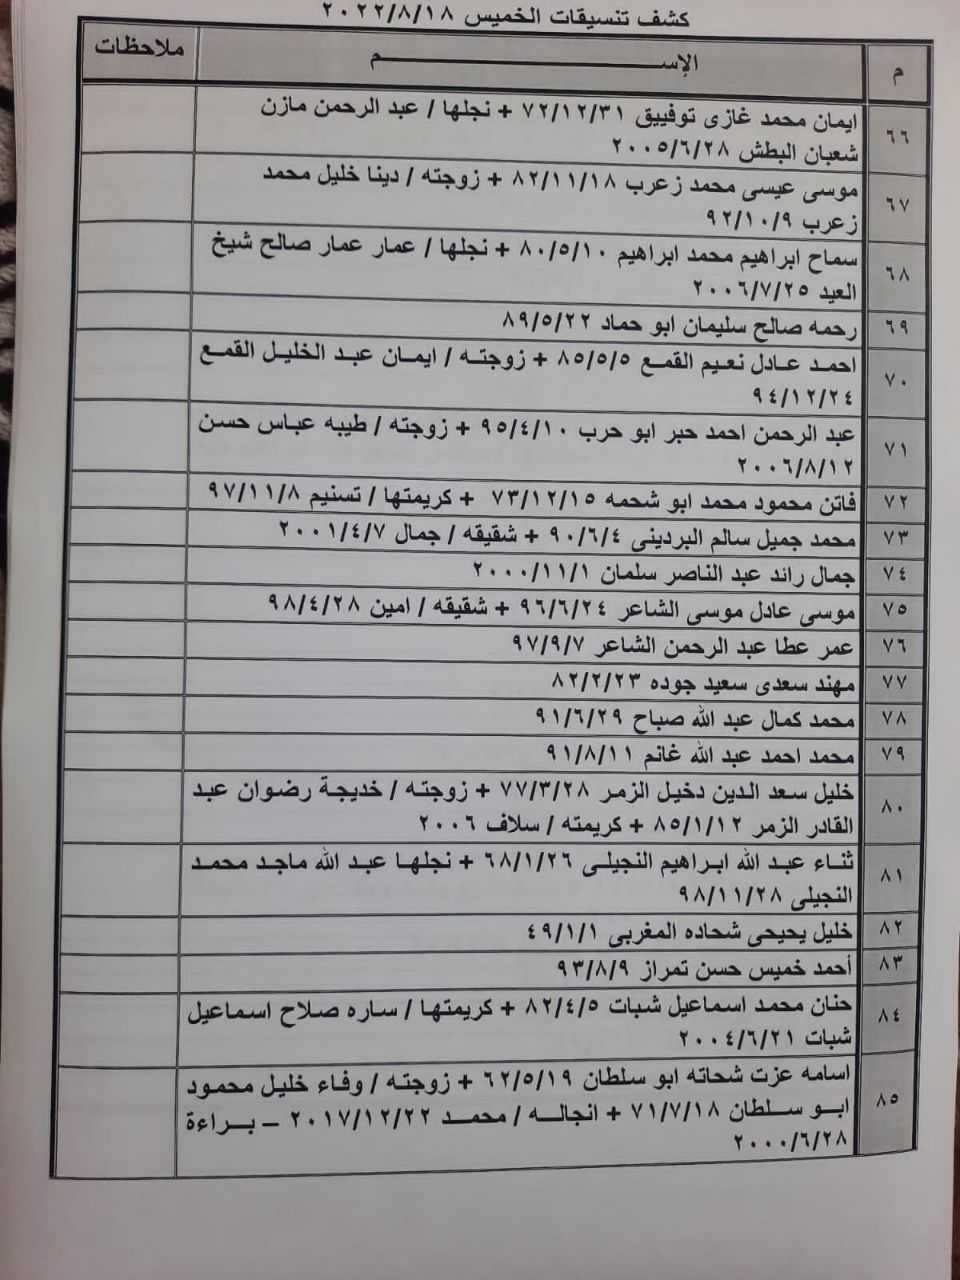 كشف تنسيقات الخميس ٢٠٢٢/٨/١٨
م الإسـم ملاحظات
٦٦ ايمان محمد غازى توفييق ٧٢/١٢/٣١ + نجلها / عبد الرحمن مازن
شعبان البطش ٢٠٠٥/٦/٢٨
٦٧ موسى عيسى محمد زعرب ٨٢/١١/١٨ + زوجته / دينا خليل محمد
زعرب ٩٢/١٠/٩
٦٨ سماح ابراهيم محمد ابراهيم ٨٠/٥/١٠ + نجلها / عمار عمار صالح شيخ
العيد ٢٠٠٦/٧/٢٥
٦٩ رحمه صالح سليمان ابو حماد ٨٩/٥/٢٢
٧٠ احمد عادل نعيم القمع ٨٥/٥/٥ + زوجته / ايمان عبد الخليل القمع
٩٤/١٢/٢٤
٧١ عبد الرحمن احمد حبر ابو حرب ٩٥/٤/١٠ + زوجته / طيبه عباس حسن
٢٠٠٦/٨/١٢
٧٢ فاتن محمود محمد ابو شحمه ٧٣/١٢/١٥ + كريمتها / تسنيم ٩٧/١١/٨
٧٣ محمد جميل سالم البردينى ٩٠/٦/٤ + شقيقه / جمال ٢٠٠١/٤/٧
٧٤ جمال رائد عبد الناصر سلمان ٢٠٠٠/١١/١
٧٥ موسى عادل موسى الشاعر ٩٦/٦/٢٤ + شقيقه / امين ٩٨/٤/٢٨
٧٦ عمر عطا عبد الرحمن الشاعر ٩٧/٩/٧
٧٧ مهند سعدى سعيد جوده ٨٢/٢/٢٣
٧٨ محمد كمال عبد الله صباح ٩١/٦/٢٩
٧٩ محمد احمد عبد الله غانم ٩١/٨/١١
٨٠ خليل سعد الدين دخيل الزمر ٧٧/٣/٢٨ + زوجته / خديجة رضوان عبد
القادر الزمر ٨٥/١/١٢ + كريمته / سلاف ٢٠٠٦
٨١ ثناء عبد الله ابراهيم النجيلى ٦٨/١/٢٦ + نجلها عبد الله ماجد محمد
النجيلى ٩٨/١١/٢٨
٨٢ خليل يحيحى شحاده المغربى ٤٩/١/١
٨٣ أحمد خميس حسن تمراز ٩٣/٨/٩
٨٤ حنان محمد اسماعيل شبات ٨٢/٤/٥ + كريمتها / ساره صلاح اسماعيل
شبات ٢٠٠٤/٦/٢١
٨٥ اسامه عزت شحاته ابو سلطان ٦٢/٥/١٩ + زوجته / وفاء خليل محمود
ابو سلطان ٧١/٧/١٨ + انجاله / محمد ٢٠١٧/١٢/٢٢ – براءة
٢٠٠٠/٦/٢٨